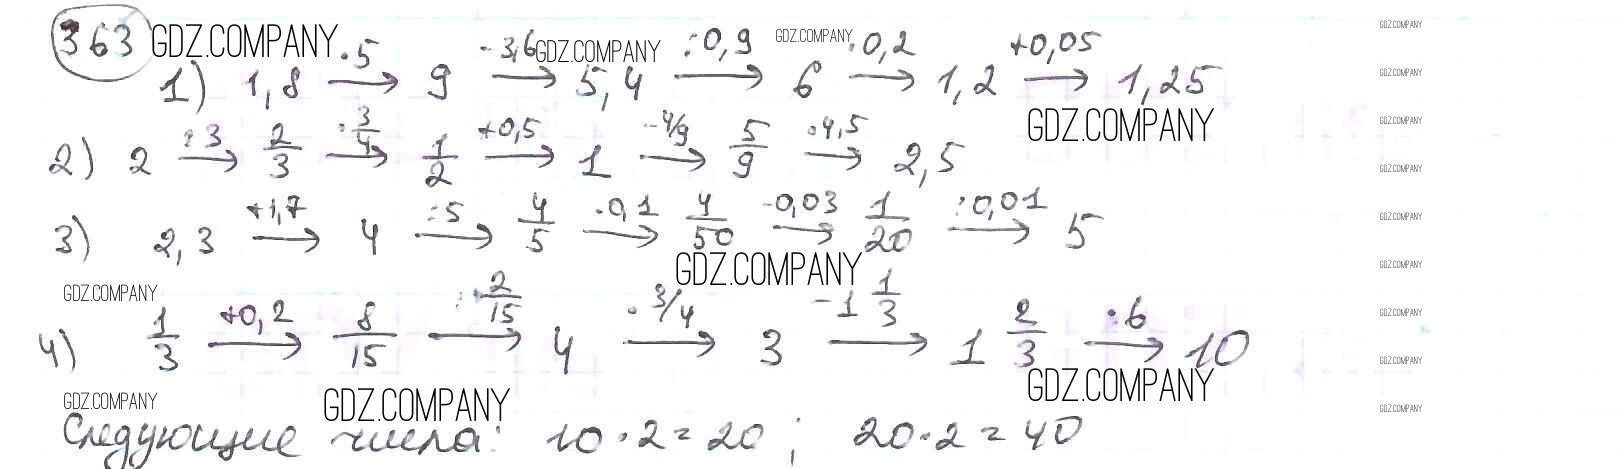 363 GDZ.COMPANY
1) 1,8 —·5→ 9 —-3,6→ 5,4 —:0,9→ 6 —·0,2→ 1,2 —+0,05→ 1,25
GDZ.COMPANY GDZ.COMPANY
GDZ.COMPANY
2) 2 —:3→ 2/3 —·3/4→ 1/2 —+0,5→ 1 —-4/9→ 5/9 —·4,5→ 2,5
3) 2,3 —+1,7→ 4 —:5→ 4/5 —·0,1→ 4/50 —-0,03→ 1/20 —:0,01→ 5
GDZ.COMPANY
GDZ.COMPANY
4) 1/3 —+0,2→ 8/15 —:2/15→ 4 —·3/4→ 3 —-1 1/3→ 1 2/3 —·6→ 10
GDZ.COMPANY
GDZ.COMPANY GDZ.COMPANY
Следующие числа: 10·2=20; 20·2=40
GDZ.COMPANY
GDZ.COMPANY
GDZ.COMPANY
GDZ.COMPANY
GDZ.COMPANY
GDZ.COMPANY
GDZ.COMPANY
GDZ.COMPANY
GDZ.COMPANY